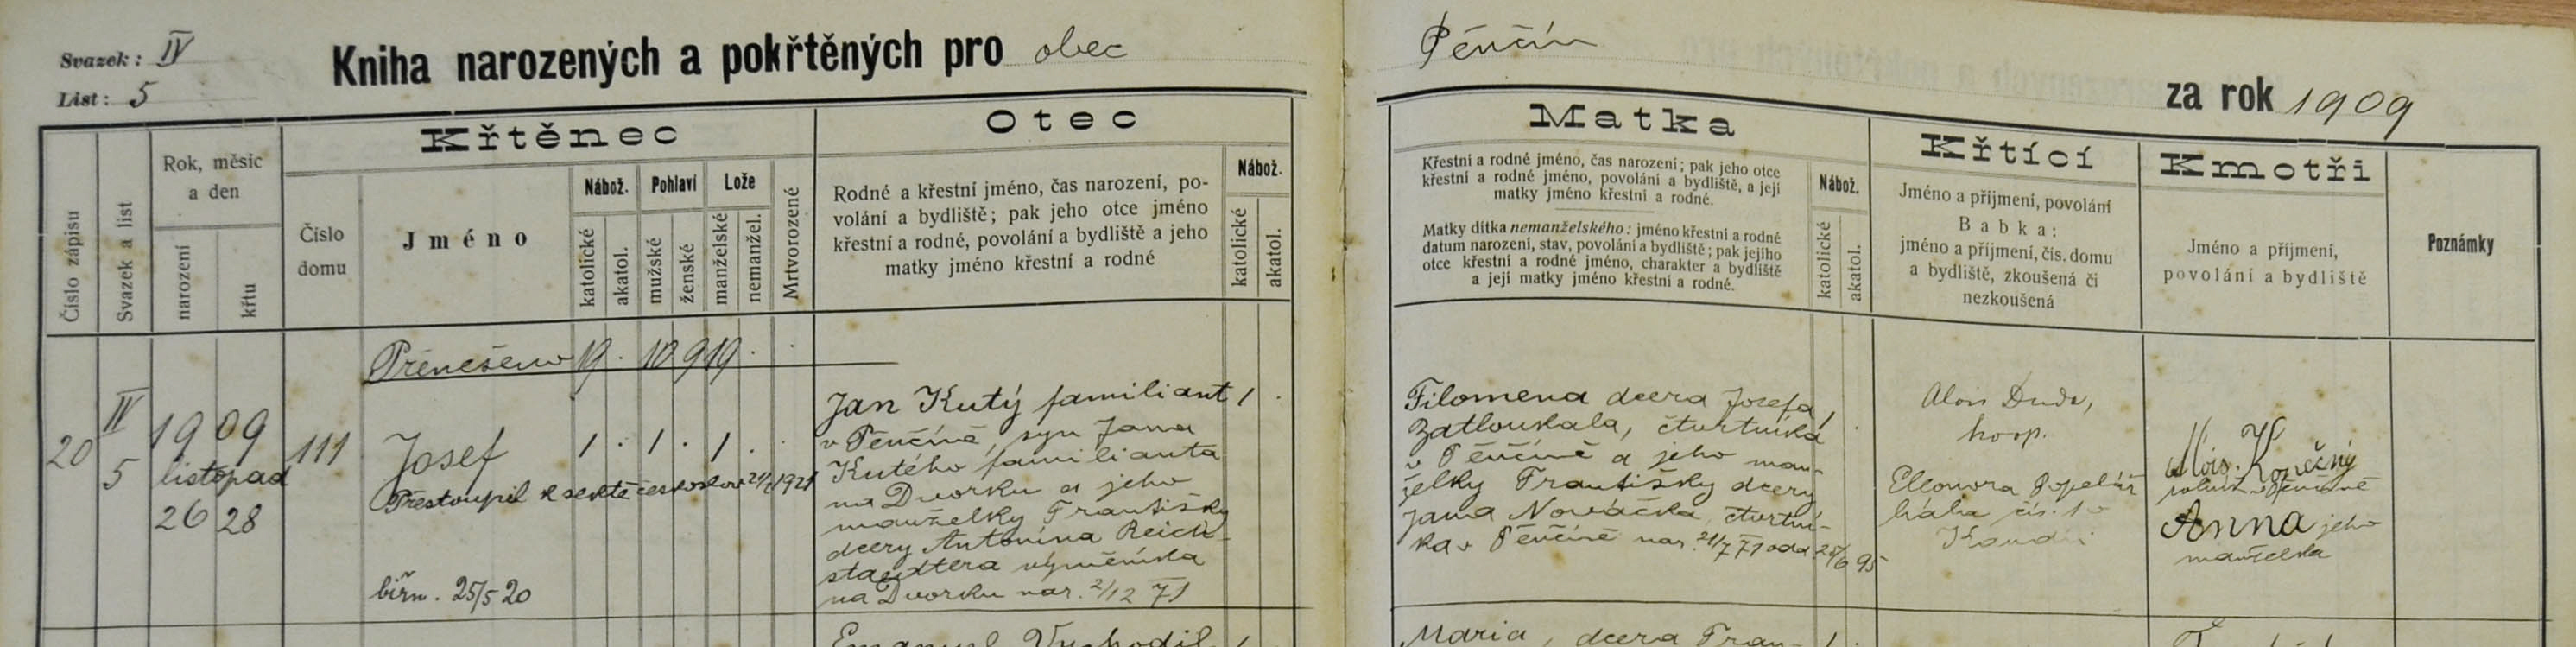 Svazek: IV
List: 5
Kniha narozených a pokřtěných pro obec
Pěnčín
za rok 1909
Číslo zápisu
Svazek a list
Rok, měsíc
a den
narození
křtu
Křtěnec
Číslo
domu
Jméno
Nábož.
katolické
akatol.
Pohlaví
mužské
ženské
Lože
manželské
nemanžel.
Mrtvorozené
Otec
Rodné a křestní jméno, čas narození, po-
volání a bydliště; pak jeho otce jméno
křestní a rodné, povolání a bydliště a jeho
matky jméno křestní a rodné
Nábož.
katolické
akatol.
Matka
Křestní a rodné jméno, čas narození; pak jeho otce
křestní a rodné jméno, povolání a bydliště, a její
matky jméno křestní a rodné.
Matky dítka nemanželského: jméno křestní a rodné
datum narození, stav, povolání a bydliště; pak jejího
otce křestní a rodné jméno, charakter a bydliště
a její matky jméno křestní a rodné.
Nábož.
katolické
akatol.
Křtící
Jméno a příjmení, povolání
Babka:
jméno a příjmení, čís. domu
a bydliště, zkoušená či
nezkoušená
Kmotři
Jméno a příjmení,
povolání a bydliště
Poznámky
Přenešeno 19 . 10 9 19 . .
20
IV
5
1909
listopad
26 28
111
Josef
1 . 1 . 1 . .
Přestoupil k sektě českoslov. 1921
biřm. 25/5 20
Jan Kutý familiant 1 .
v Pěnčíně, syn Jana
Kutého familianta
na Dvorku a jeho
manželky Františky
dcery Antonína Reich-
staedtera výměníka
na Dvorku nar. 2/12 71
Filomena dcera Josefa 1 .
Zatloukala, čtvrtníka
v Pěnčíně a jeho man-
želky Františky dcery
Jana Nováčka, čtvrtní-
ka v Pěnčíně nar. 21/7 71 odd. 25/6 95
Alois Duda,
koop.
Eleonora Popelář
bába čís. 10
Alois Konečný
rolník v Pěnčíně
Anna jeho
manželka
Emanuel Vychodil 1
Maria, dcera Fran- 1 .